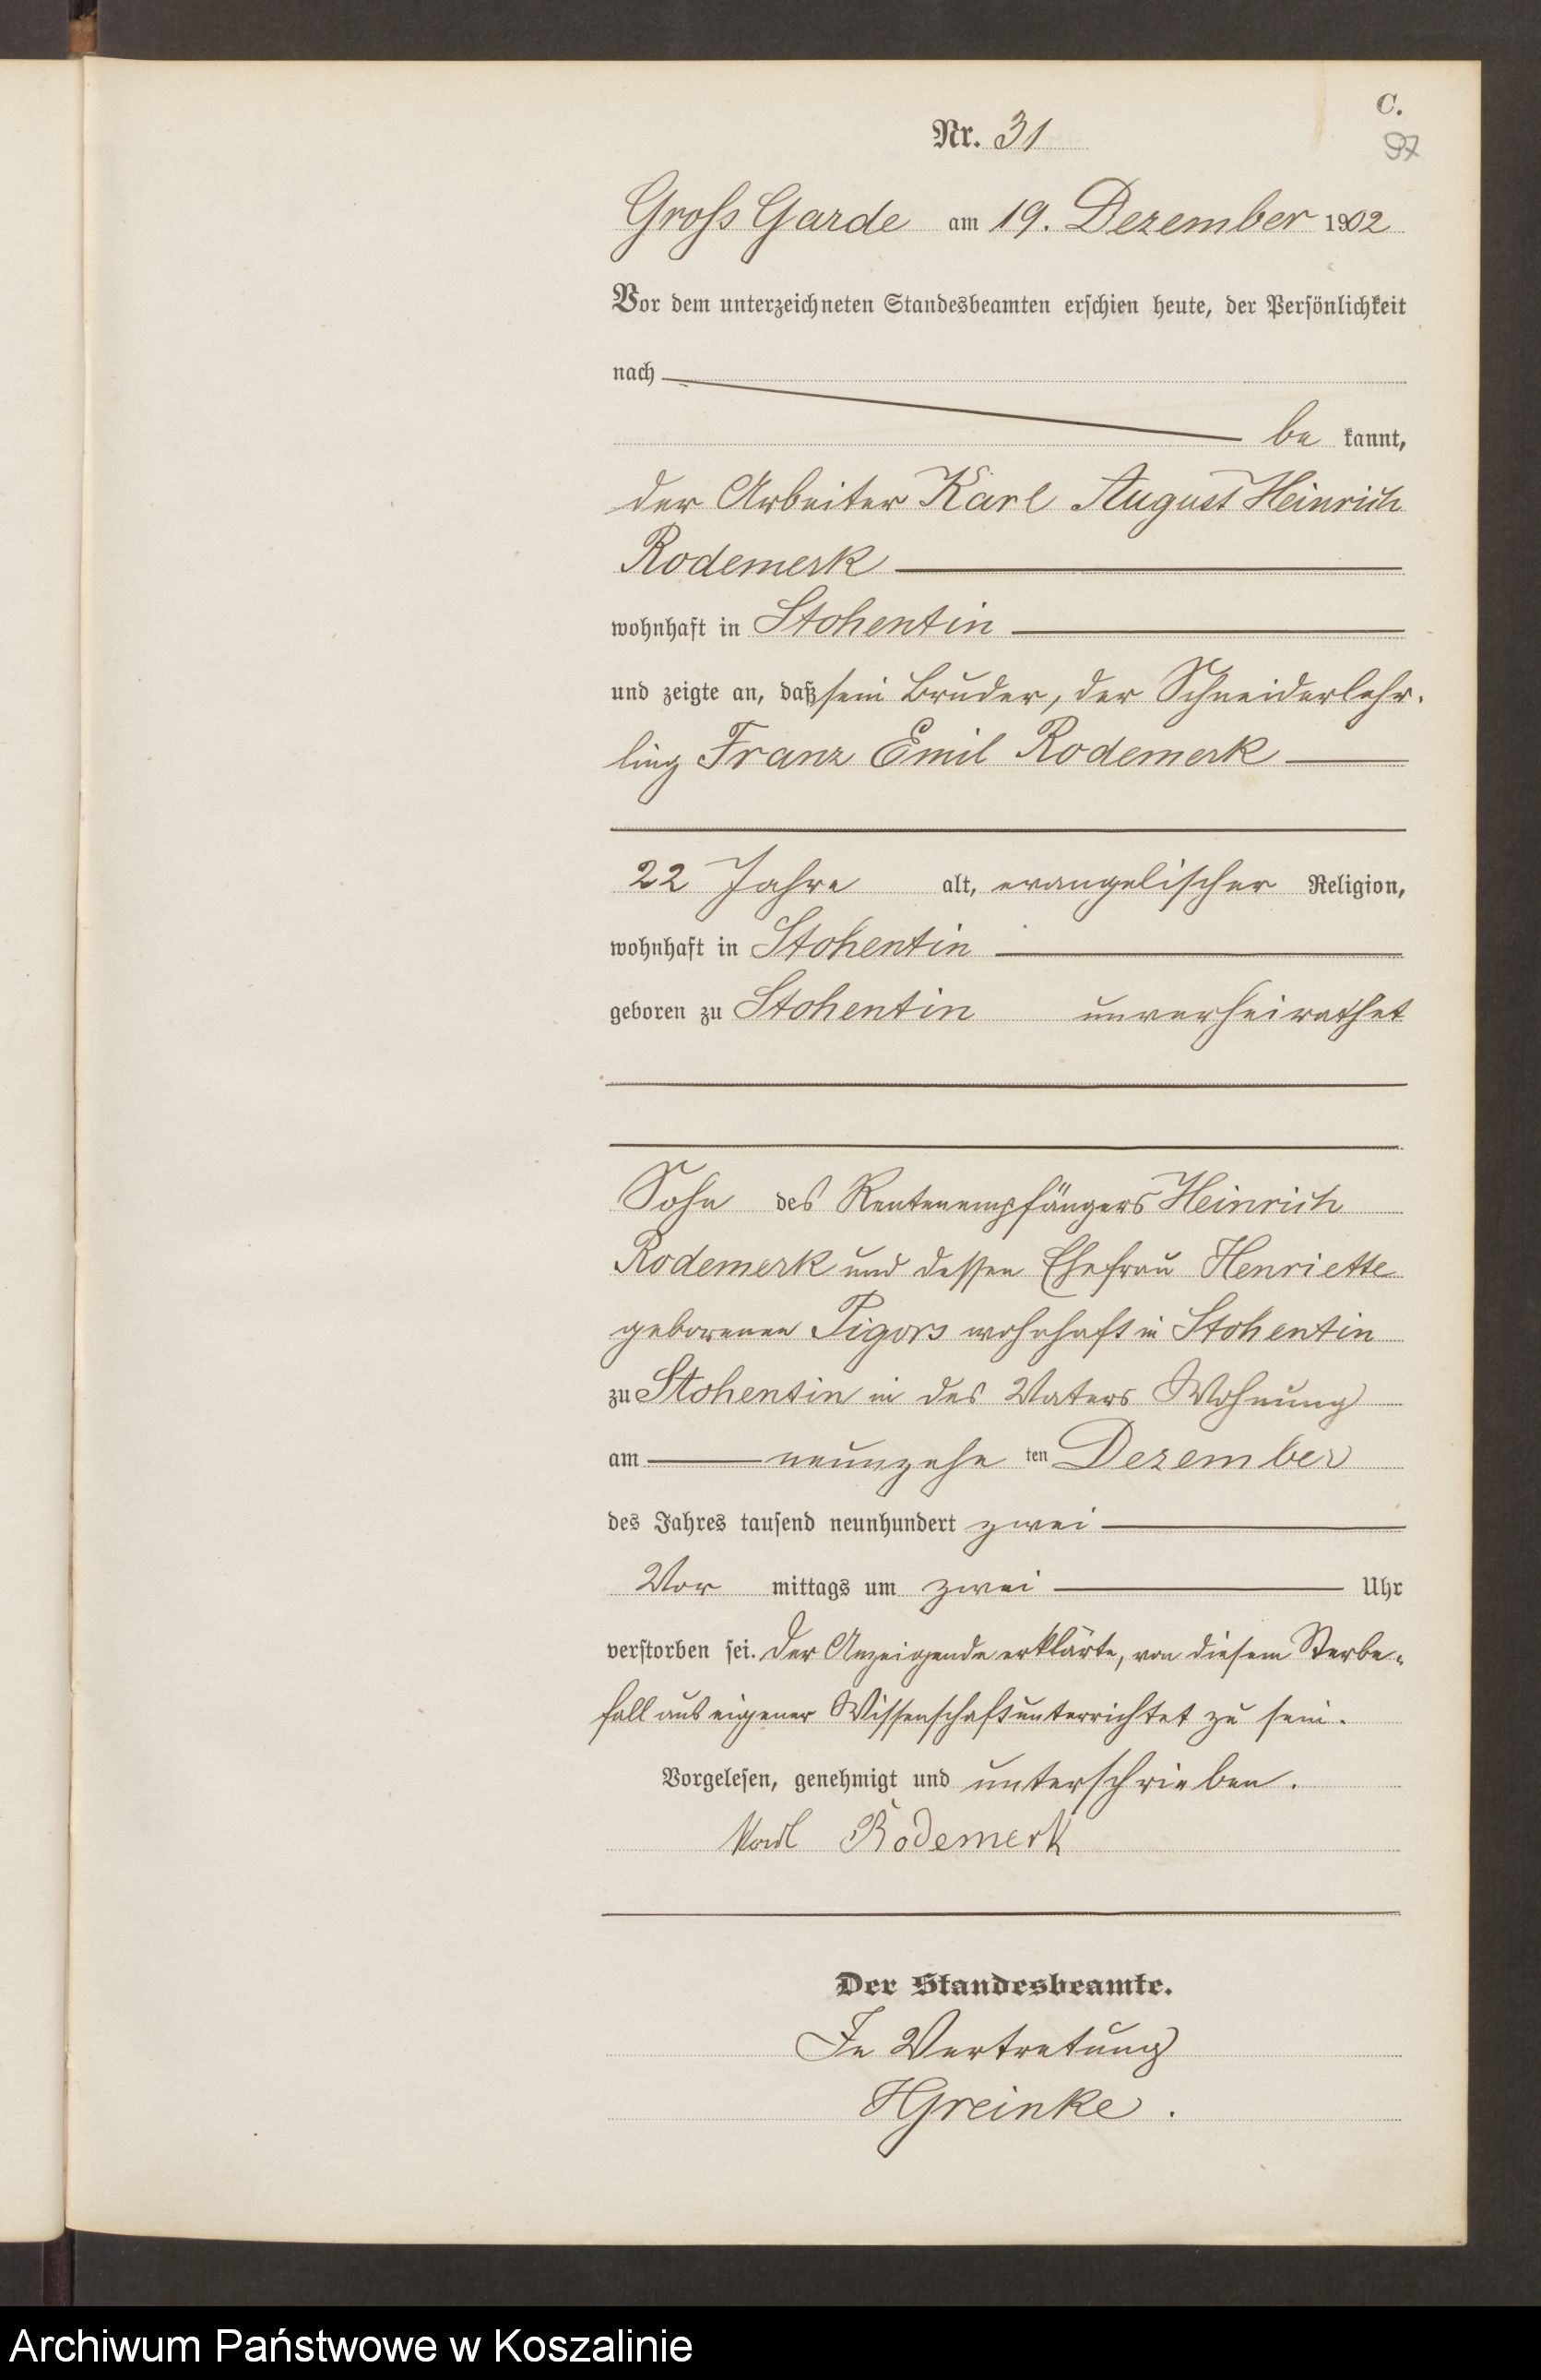 C.
Nr. 31
97
Gross Garde am 19. Dezember 1902
Vor dem unterzeichneten Standesbeamten erschien heute, der Persönlichkeit
nach
be kannt,
der Arbeiter Karl August Heinrich
Rodemerk
wohnhaft in Stohentin
und zeigte an, daß sein Bruder, der Schneiderlehr-
ling Franz Emil Rodemerk
22 Jahre alt, evangelischer Religion,
wohnhaft in Stohentin
geboren zu Stohentin unverheirathet
Sohn des Rentenempfängers Heinrich
Rodemerk und dessen Ehefrau Henriette
geborenen Pigors wohnhaft in Stohentin
zu Stohentin in des Vaters Wohnung
am neunzehn ten Dezember
des Jahres tausend neunhundert zwei
Vor mittags um zwei Uhr
verstorben sei. Der Anzeigende erklärte, von diesem Sterbe-
fall aus eigener Wissenschaft unterrichtet zu sein.
Vorgelesen, genehmigt und unterschrieben.
Karl Rodemerk
Der Standesbeamte.
In Vertretung
HGreinke.
Archiwum Państwowe w Koszalinie